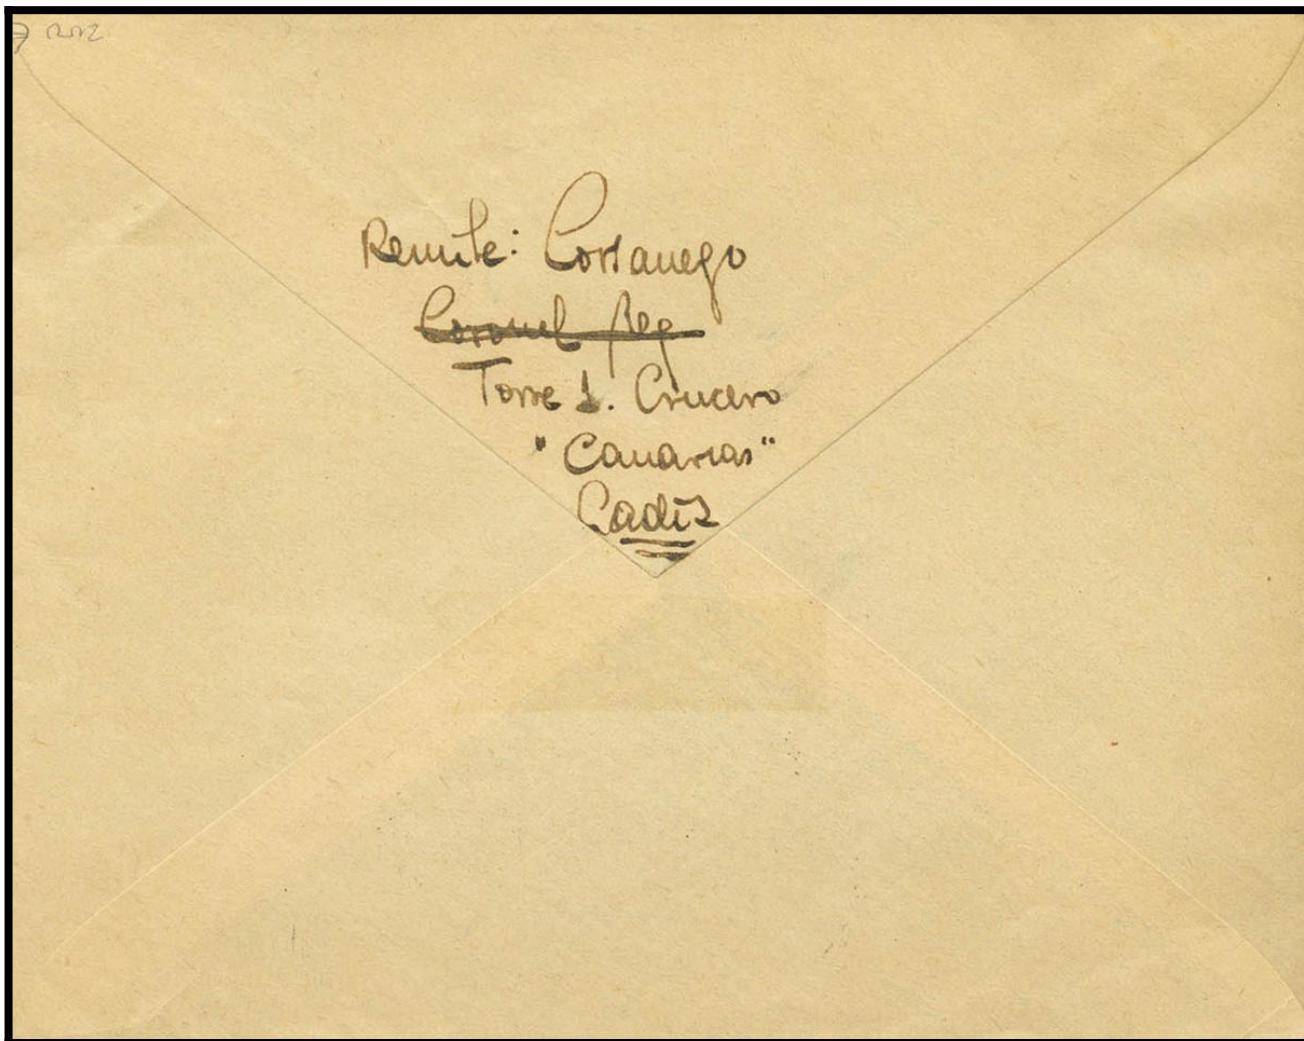 Remite: Cossanego
Coronel Reg
Torre 1. Crucero
"Canarias"
Cadiz